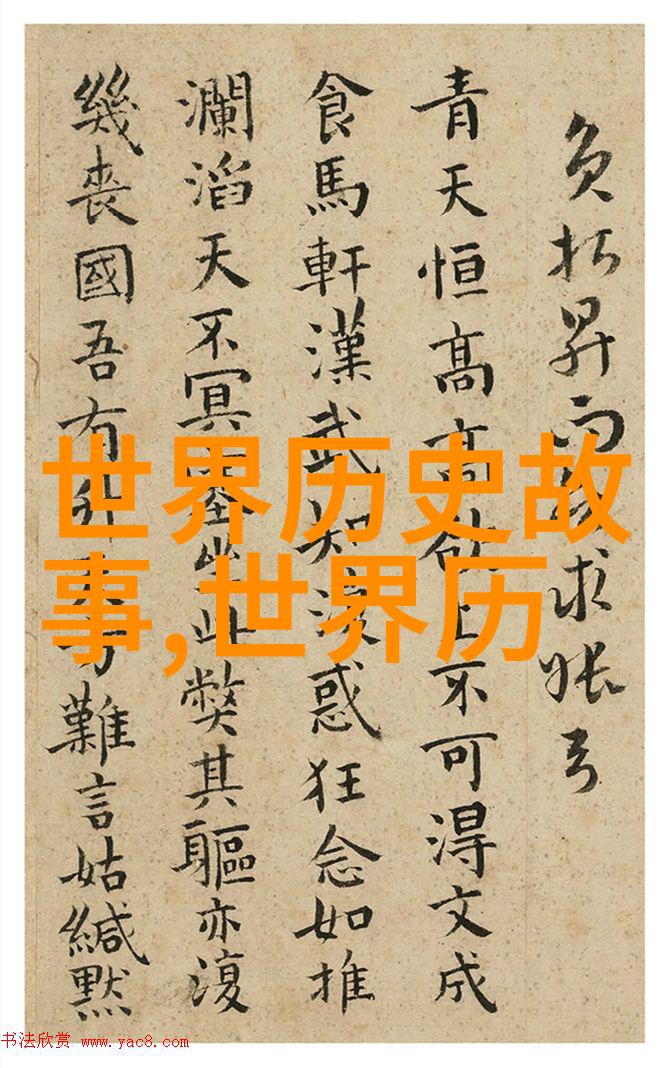 求
青天恒高高欲上不可得文成
食馬軒漢武知復惑狂念如推
瀾滔天不冥坐此弊其軀亦復
幾喪國吾有難言姑緘默
世界历史故
事,世界历
书法欣赏 www.yac8.com